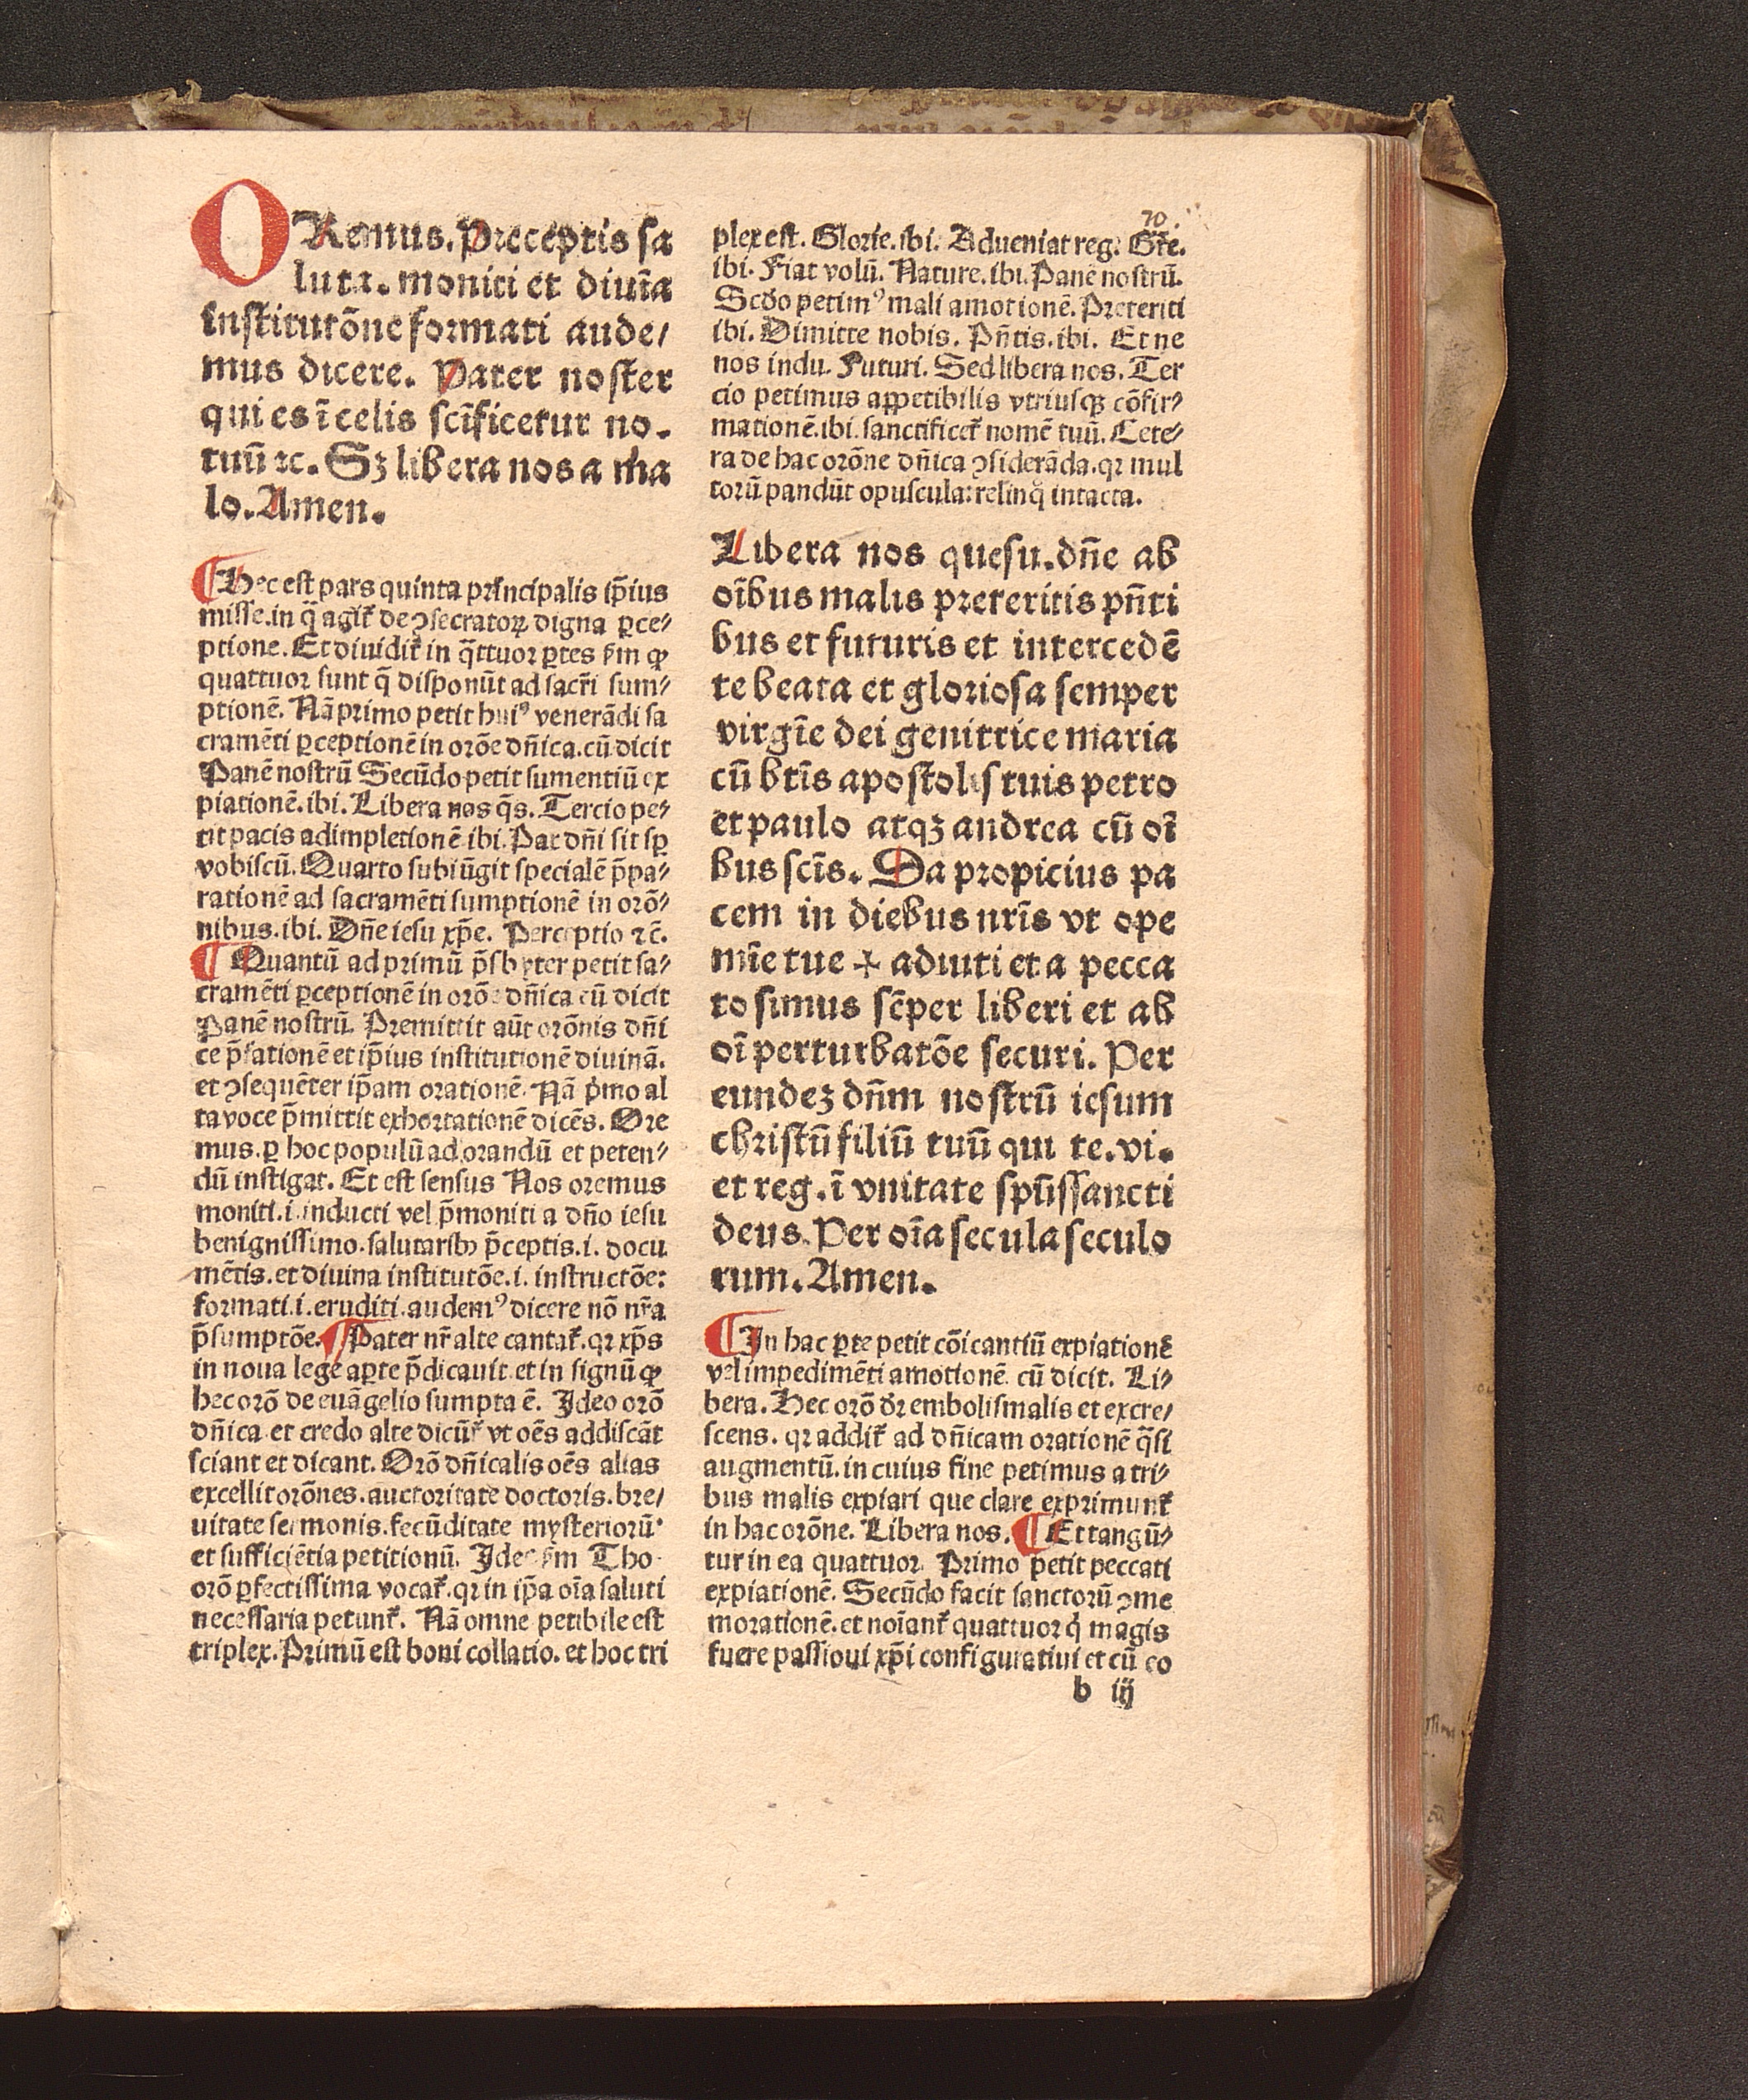 70
ORemus. Preceptis sa
luta. moniti et diuīa
institutōne formati aude/
mus dicere. Pater noster
qui es ī celis scīficetur no.
tuū ⁊c. Sꝫ libera nos a ma
lo. Amen.
¶ Hec est pars quinta principalis ip̄ius
misse. in q̄ agit̄ de ꝯsecratoꝝ digna ꝑce⸗
ptione. Et diuidit̄ in q̄ttuor ꝑtes ẜm ꝙ
quattuor sunt q̄ disponūt ad sacr̄i sum⸗
ptionē. Nā primo petit huiꝰ venerādi sa
cramēti ꝑceptionē in orōe dn̄ica. cū dicit
Panē nostrū Secūdo petit sumentiū ex
piationē. ibi. Libera nos q̄s. Tercio pe⸗
tit pacis adimpletionē ibi. Pax dn̄i sit sꝑ
vobiscū. Quarto subiūgit specialē p̄pa⸗
rationē ad sacramēti sumptionē in orō⸗
nibus. ibi. Dn̄e iesu xp̄e. Perceptio ⁊c̄.
¶ Quantū ad primū p̄sbyter petit sa⸗
cramēti ꝑceptionē in orōe dn̄ica cū dicit
Panē nostrū. Premittit aūt orōnis dn̄i
ce p̄fationē et ip̄ius institutionē diuinā.
et ꝯsequēter ip̄am orationē. Nā p̄mo al
ta voce p̄mittit exhortationē dicēs. Ore
mus. ꝑ hoc populū ad orandū et peten⸗
dū instigat. Et est sensus Nos oremus
moniti. i. inducti vel p̄moniti a dn̄o iesu
benignissimo. salutaribꝰ p̄ceptis. i. docu
mētis. et diuina institutōe. i. instructōe:
formati. i. eruditi. audemꝰ dicere nō nr̄a
p̄sumptōe. ¶ Pater nr̄ alte cantat̄. qꝛ xp̄s
in noua lege aꝑte p̄dicauit. et in signū ꝙ
hec orō de euāgelio sumpta ē. Ideo orō
dn̄ica et credo alte dicūt̄ vt oēs addiscāt
sciant et dicant. Orō dn̄icalis oēs alias
excellit orōnes. auctoritate doctoris. bre/
uitate sermonis. fecūditate mysteriorū.
et sufficiētia petitionū. Ideo ẜm Tho.
orō ꝑfectissima vocat̄. qꝛ in ip̄a oīa saluti
necessaria petunt̄. Nā omne petibile est
triplex. Primū est boni collatio. et hoc tri
plex est. Glorie. ibi. Adueniat reg. Gr̄e.
ibi. Fiat volū. Nature. ibi. Panē nostrū.
Scd̄o petimꝰ mali amotionē. Preteriti
ibi. Dimitte nobis. Pn̄tis. ibi. Et ne
nos indu. Futuri. Sed libera nos. Ter
cio petimus appetibilis vtriusqꝫ cōfir⸗
mationē. ibi. sanctificet̄ nomē tuū. Cete⸗
ra de hac orōne dn̄ica ꝯsiderāda. qꝛ mul
torū pandūt opuscula: relinq̄ intacta.
Libera nos quesu. dn̄e ab
oībus malis preteritis pn̄ti
bus et futuris et intercedē
te beata et gloriosa semper
virgīe dei genitrice maria
cū btīs apostolis tuis petro
et paulo atqꝫ andrea cū oī
bus scīs. Da propicius pa
cem in diebus nrīs vt ope
mīe tue ✢ adiuti et a pecca
to simus sēper liberi et ab
oī perturbatōe securi. Per
eundeꝫ dn̄m nostrū iesum
christū filiū tuū qui te. vi.
et reg. ī vnitate spūssancti
deus. Per oīa secula seculo
rum. Amen.
¶ In hac ꝑte petit cōicantiū expiationē
vel impedimēti amotionē. cū dicit. Li⸗
bera. Hec orō dr̄ embolismalis et excre/
scens. qꝛ addit̄ ad dn̄icam orationē q̄si
augmentū. in cuius fine petimus a tri⸗
bus malis expiari que clare exprimunt̄
in hac orōne. Libera nos. ¶ Et tangū⸗
tur in ea quattuor. Primo petit peccati
expiationē. Secūdo facit sanctorū ꝯme
morationē. et noīant̄ quattuor q̇ magis
fuere passioui xp̄i configuratiui et cū eo
b iij